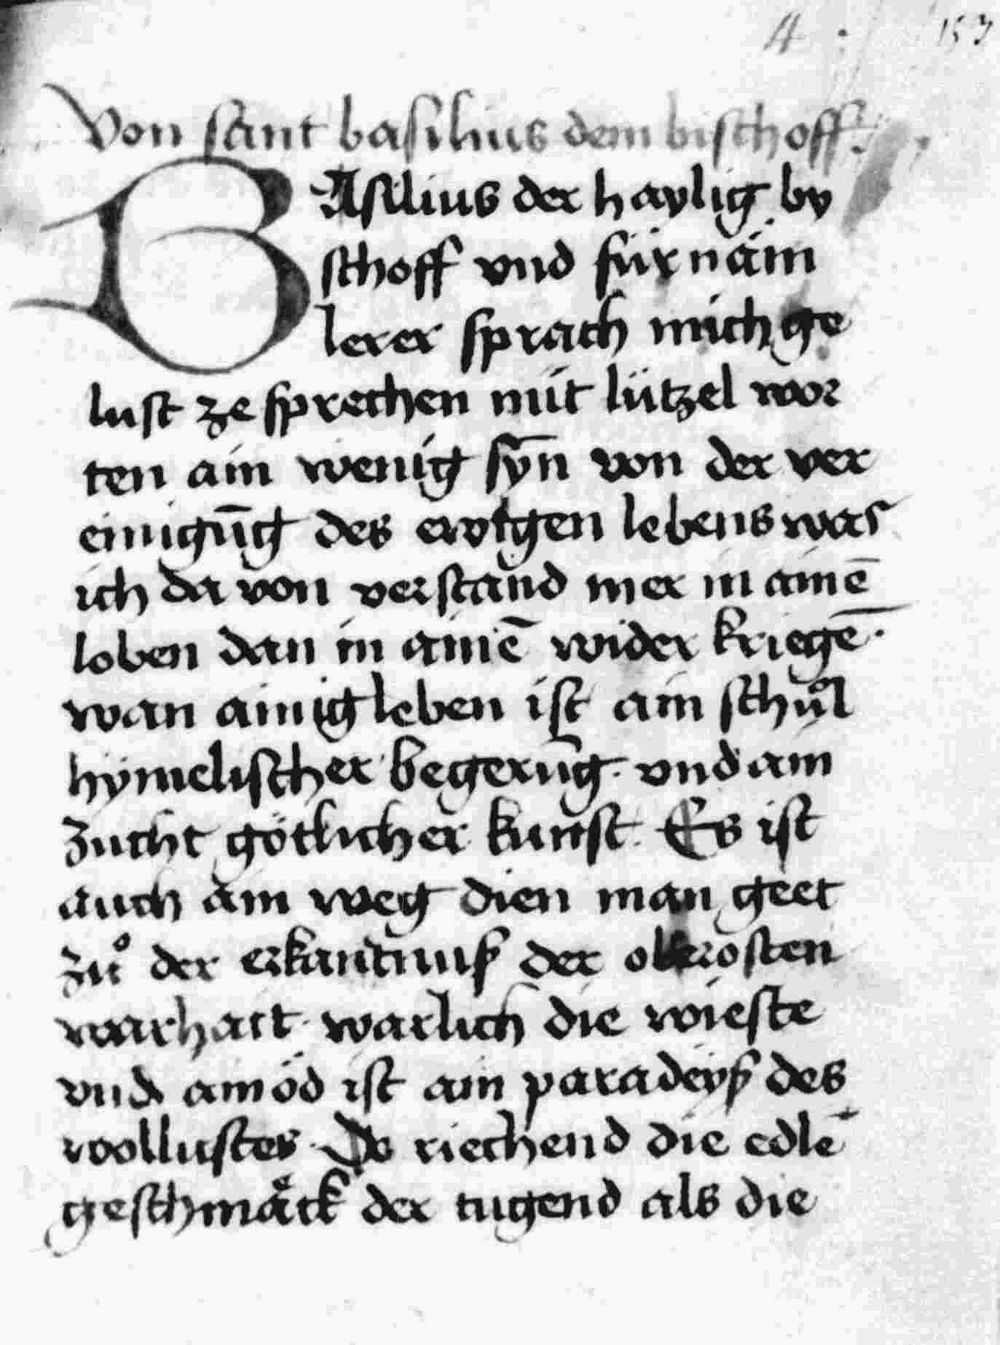 4 153
Von sant basilius dem bischoff.
BAsilius der haylig by
schoff vnd fürnäm
lerer sprach mich ge
lust ze sprechen mit lützel wor
ten ain wenig syn̄ von der ver
einigūg des ewigen lebens was
ich da von verstand mer in ainē
loben dan in ainē wider kriegē.
wan ainig leben ist ain schůl
hymelischer begerūg. vnd ain
zucht götlicher kunst. Es ist
auch ain weg dien man geet
zů der erkantnuß der obrosten
warhait. warlich die wieste
vnd ainöd ist ain paradeyß des
wollustes. Do riechend die edlē
geschmäck der tugend als die